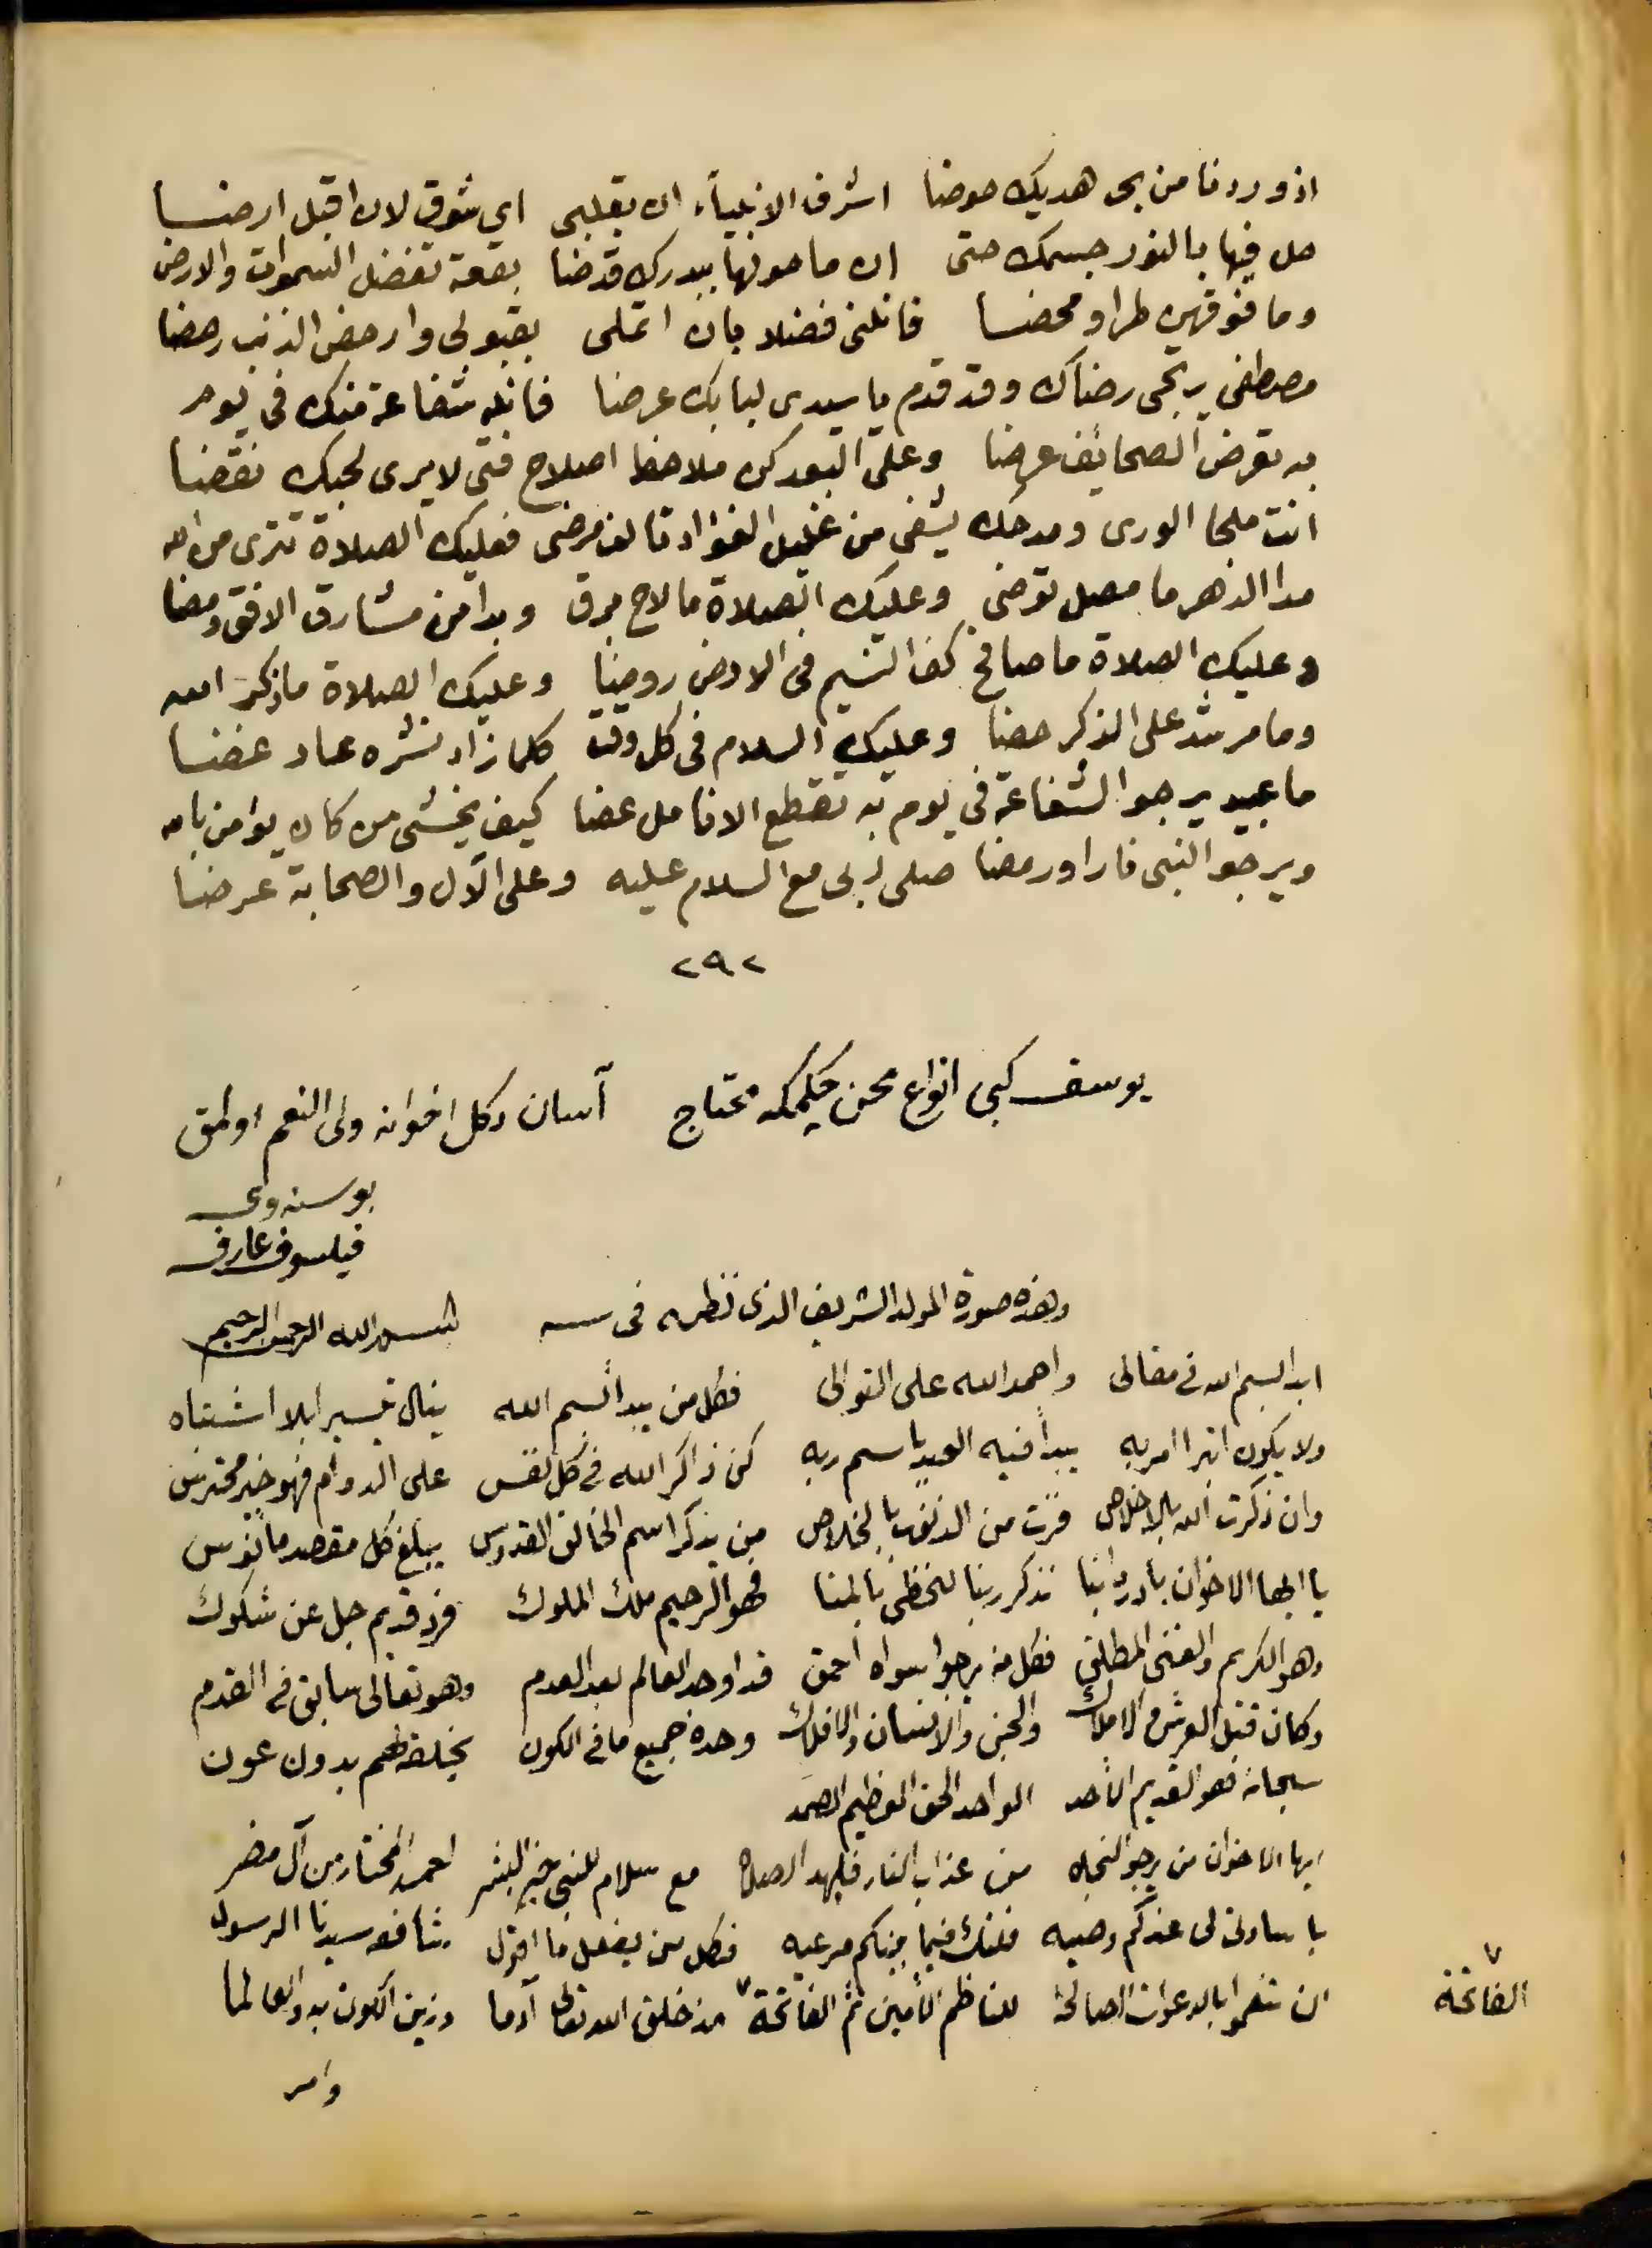 اذ وردنا من بحر هديك حوضا اشرف الانبياء ان بقلبى اى شوق لان اقبل ارضا
حل فيها بالنور جسمك حتى ان ما حولها ببدرك قد ضا بقعة تفضل السموات والارض
وما فوقهن طرا ومحضا فانلنى فضلا بان اتملى بقبولى وارحض الذنب رحضا
مصطفى يرتجى رضاك وقد قدم يا سيدى لبابك عرضا فانله شفاعة منك فى يوم
به تعرض الصحائف عرضا وعلى البعد كن ملاحظ اصلاح فتى لا يرى لحبك نقضا
انت ملجا الورى ومدحك يشفى من غليل الفؤاد تالف مرضى فعليك الصلاة تترى من الله
مدا الدهر ما مصل توضى وعليك الصلاة ما لاح برق وبدا من مشارق الافق ومضا
وعليك الصلاة ما صافح كف النسيم فى الارض روضا وعليك الصلاة ما ذكر الله
وما مرشد على الذكر حضا وعليك السلام فى كل وقت كلما زاد نشره عاد غضا
ما عبيد يرجو الشفاعة فى يوم به تقطع الانامل عضا كيف يخشى من كان يؤمن بالله
ويرجو النبى نارا ورمضا صلى ربى مع السلام عليه وعلى الآل والصحابة عرضا
٢٩٢
يوسف كبى انواع محن چكمكه محتاج آسان دكل اخوانه ولى النعم اولمق
بوسنه وى
فيلسوف عارف
وهذه صورة المولد الشريف الذى نظمه فى سنه بسم الله الرحمن الرحيم
ابدا بسم الله فى مقالى واحمد الله على التوالى فكل من يبدأ بسم الله ينال تيسيرا بلا اشتباه
ولا يكون ابترا امر به يبدأ فيه العبد باسم ربه كن ذاكر الله فى كل نفس على الدوام فهو خير محترس
وان ذكرت الله بالاخلاص فزت من الذنوب بالخلاص من يذكر اسم الخالق القدوس يبلغ كل مقصد مانوس
يا ايها الاخوان بادروا بنا نذكر ربنا لنحظى بالمنا فهو الرحيم ملك الملوك فرد قديم جل عن شكوك
وهو الكريم والغنى المطلق فكل من يرجو سواه احمق قد اوجد العالم بعد العدم وهو تعالى سابق فى القدم
وكان قبل العرش والاملاك والجن والانسان والافلاك وحده جميع ما فى الكون بخلقه لهم بدون عون
سبحانه فهو القديم الأحد الواحد الحق العظيم الصمد
ايها الاخوان من يرجو النجاه من عذاب النار فليهد الصلاة مع سلام للنبى خير البشر احمد المختار من آل مضر
يا سادتى لى عندكم وصيه فلتك فيما بينكم مرعيه فكل من يفعل ما اقول شافعه سيدنا الرسول
ان تنعموا بالدعوات الصالحة للناظم الأمين ثم الفاتحة ٧ مذ خلق الله تعالى آدما وزين الكون به والعالما
٧
الفاتحة
وامر